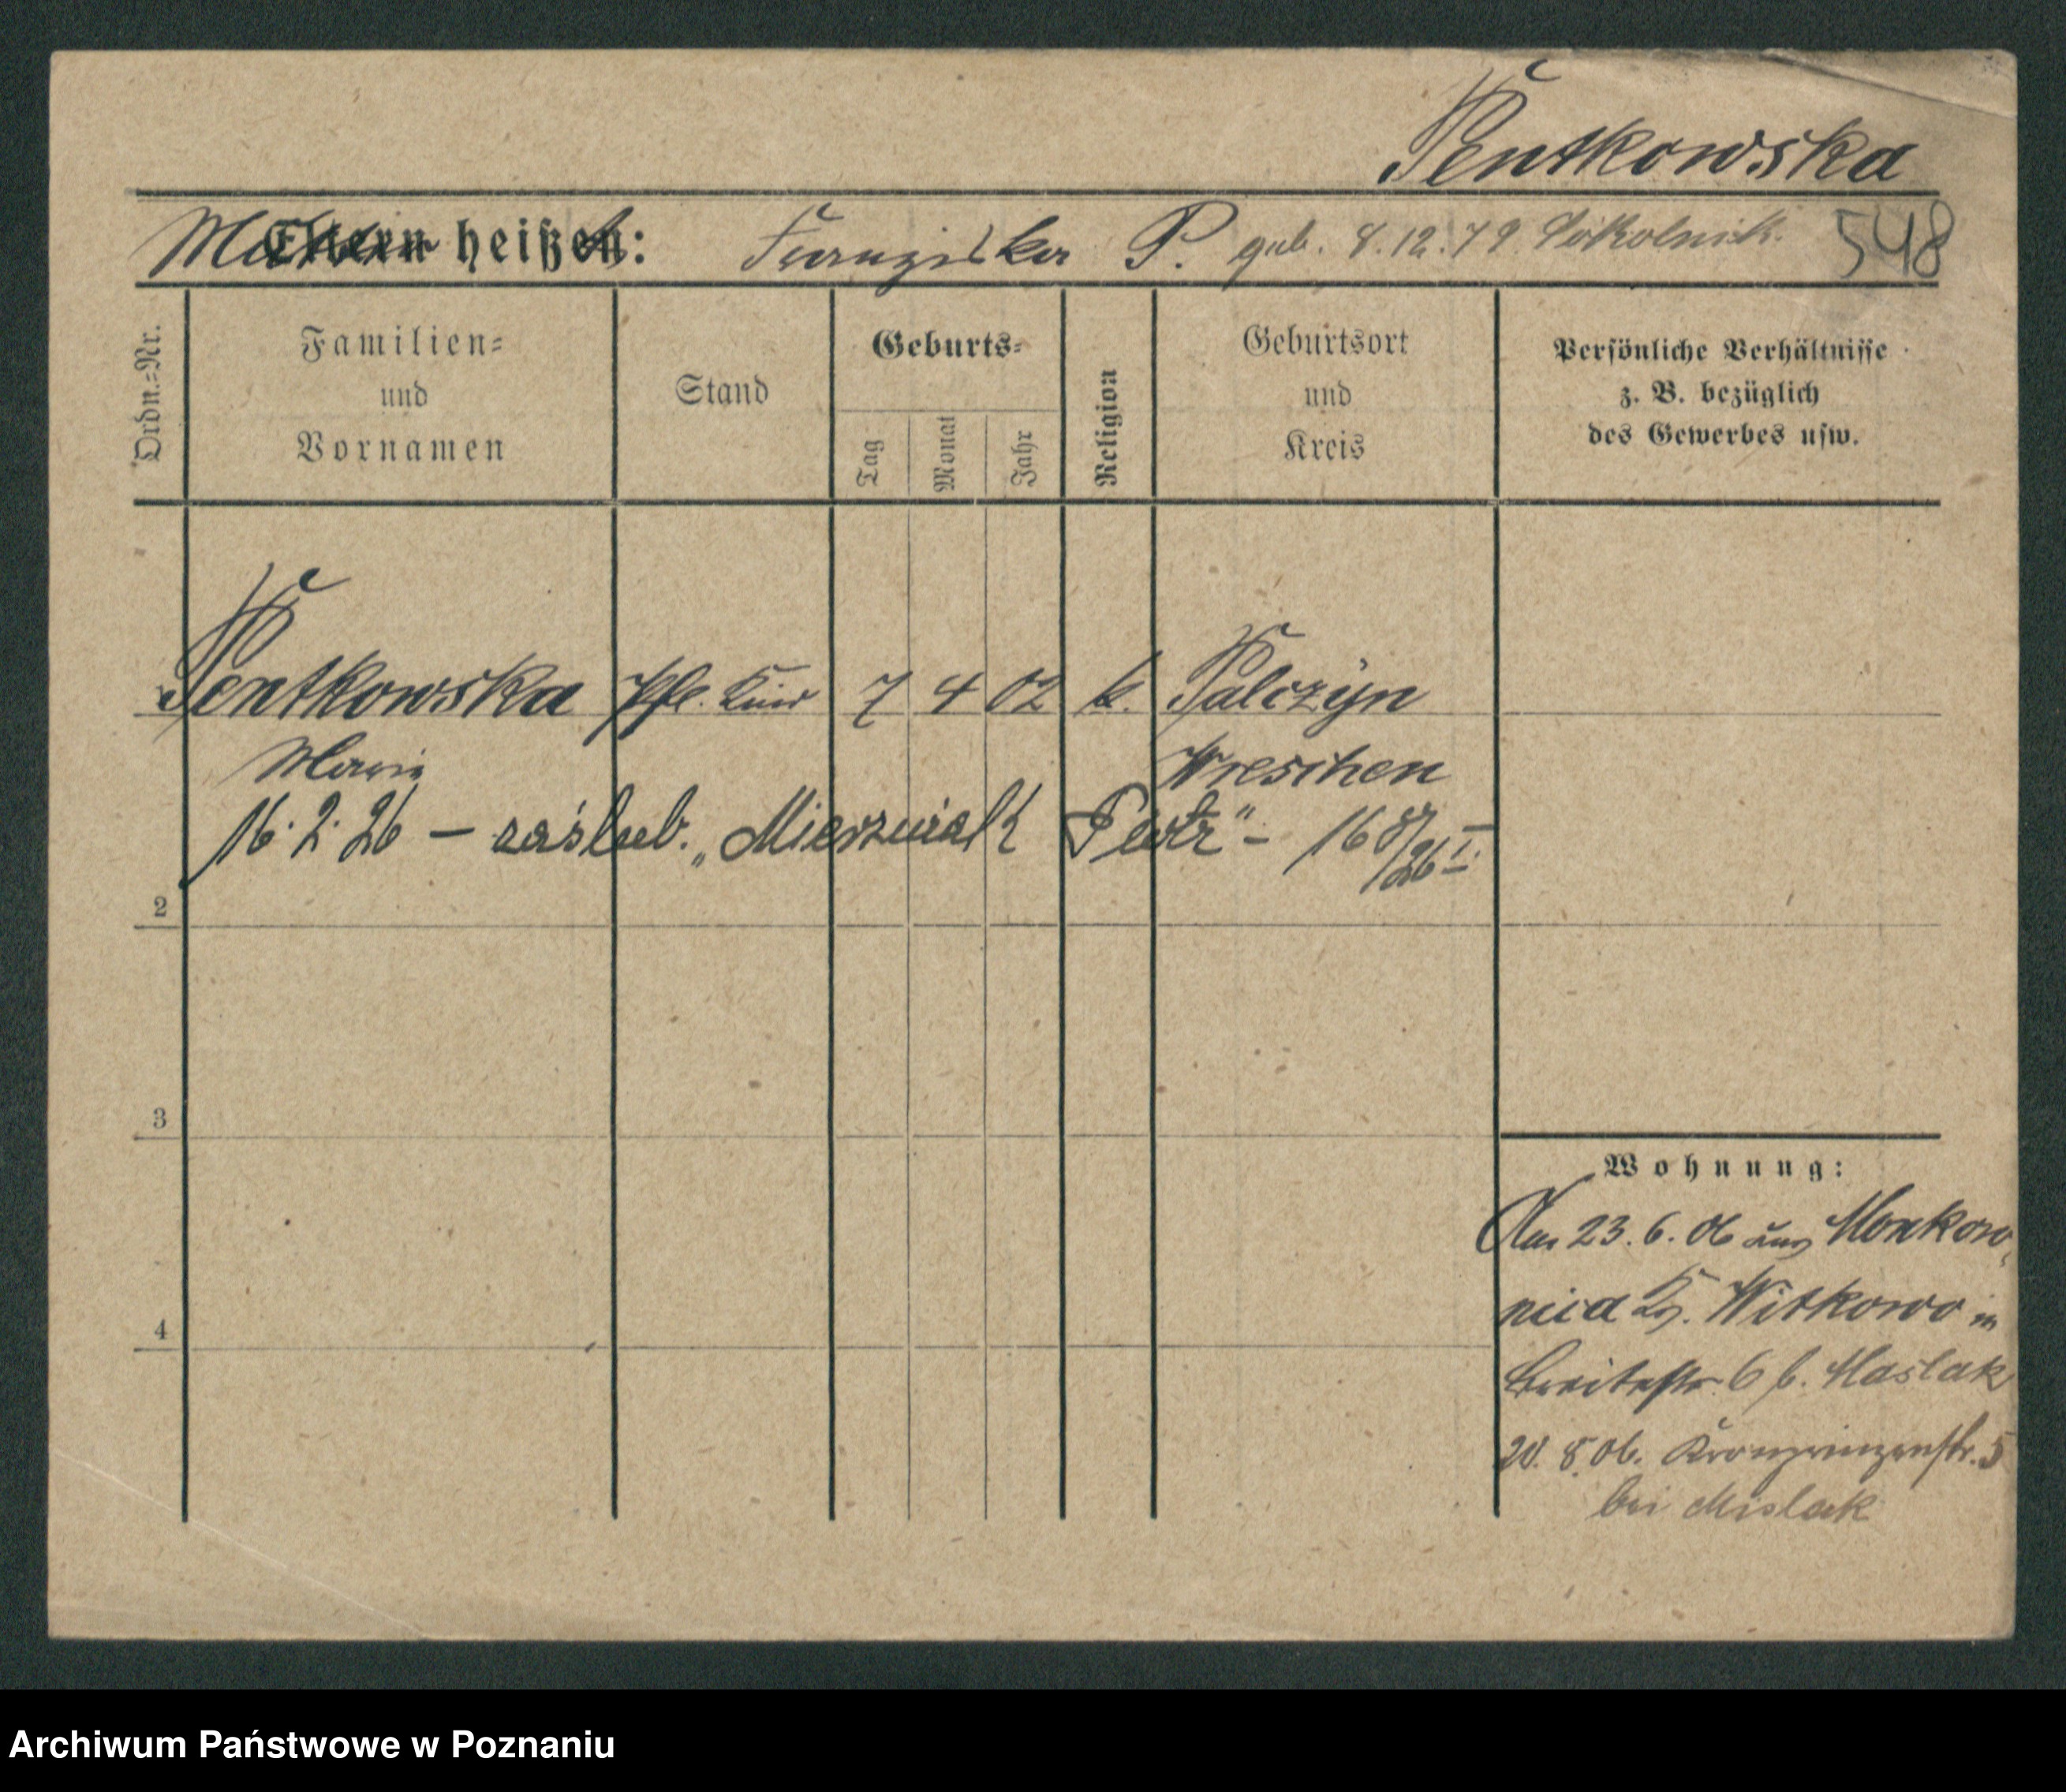 Pentkowska
Mutter heißt: Franziska P. geb. 8.12.79 Sokolnik. 548
Ordn.-Nr.
Familien-
und
Vornamen
Stand
Geburts-
Tag
Monat
Jahr
Religion
Geburtsort
und
Kreis
Persönliche Verhältnisse
z. B. bezüglich
des Gewerbes usw.
Pentkowska Pfl. Kind 7 4 02 k. Palczyn
Marie Wreschen
16.2.26 — zaślub. „Mierzwiak Piotr" –
2
3
4
Wohnung:
Am 23.6.06 aus Monkow-
nica Kr. Witkowo in
Breitestr. 6 b. Maslak
20.8.06. Kronprinzenstr. 5
bei Mislak
Archiwum Państwowe w Poznaniu